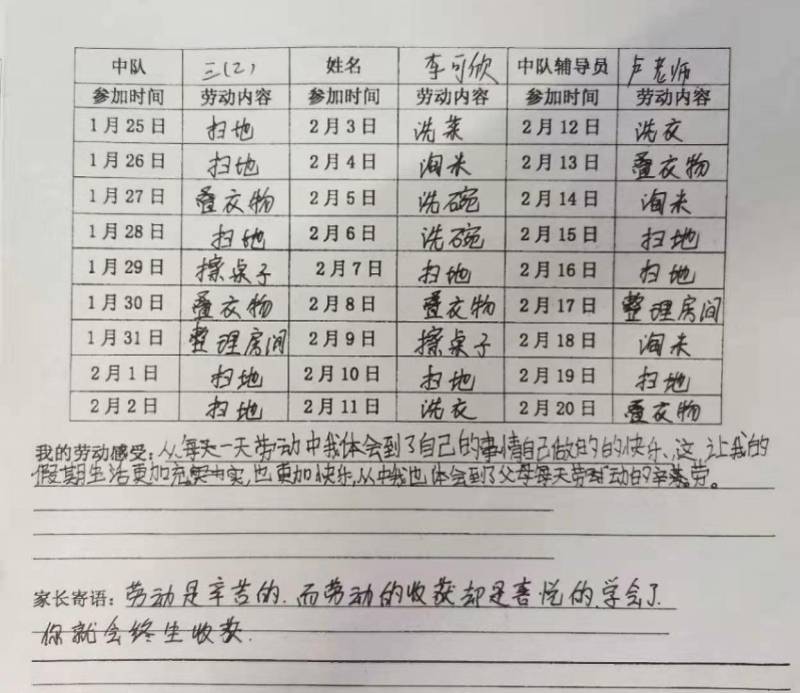 中队 三(2) 姓名 李可欣 中队辅导员 卢老师
参加时间 劳动内容 参加时间 劳动内容 参加时间 劳动内容
1月25日 扫地 2月3日 洗菜 2月12日 洗衣
1月26日 扫地 2月4日 淘米 2月13日 叠衣物
1月27日 叠衣物 2月5日 洗碗 2月14日 淘米
1月28日 扫地 2月6日 洗碗 2月15日 扫地
1月29日 擦桌子 2月7日 扫地 2月16日 扫地
1月30日 叠衣物 2月8日 叠衣物 2月17日 整理房间
1月31日 整理房间 2月9日 擦桌子 2月18日 淘米
2月1日 扫地 2月10日 扫地 2月19日 扫地
2月2日 扫地 2月11日 洗衣 2月20日 叠衣物
我的劳动感受:从每天一天劳动中我体会到了自己的事情自己做的的快乐、这让我的
假期生活更加充实,也更加快乐,从中我也体会到了父母每天劳动的辛劳。
家长寄语:劳动是辛苦的.而劳动的收获却是喜悦的.学会了
你就会终生收获.